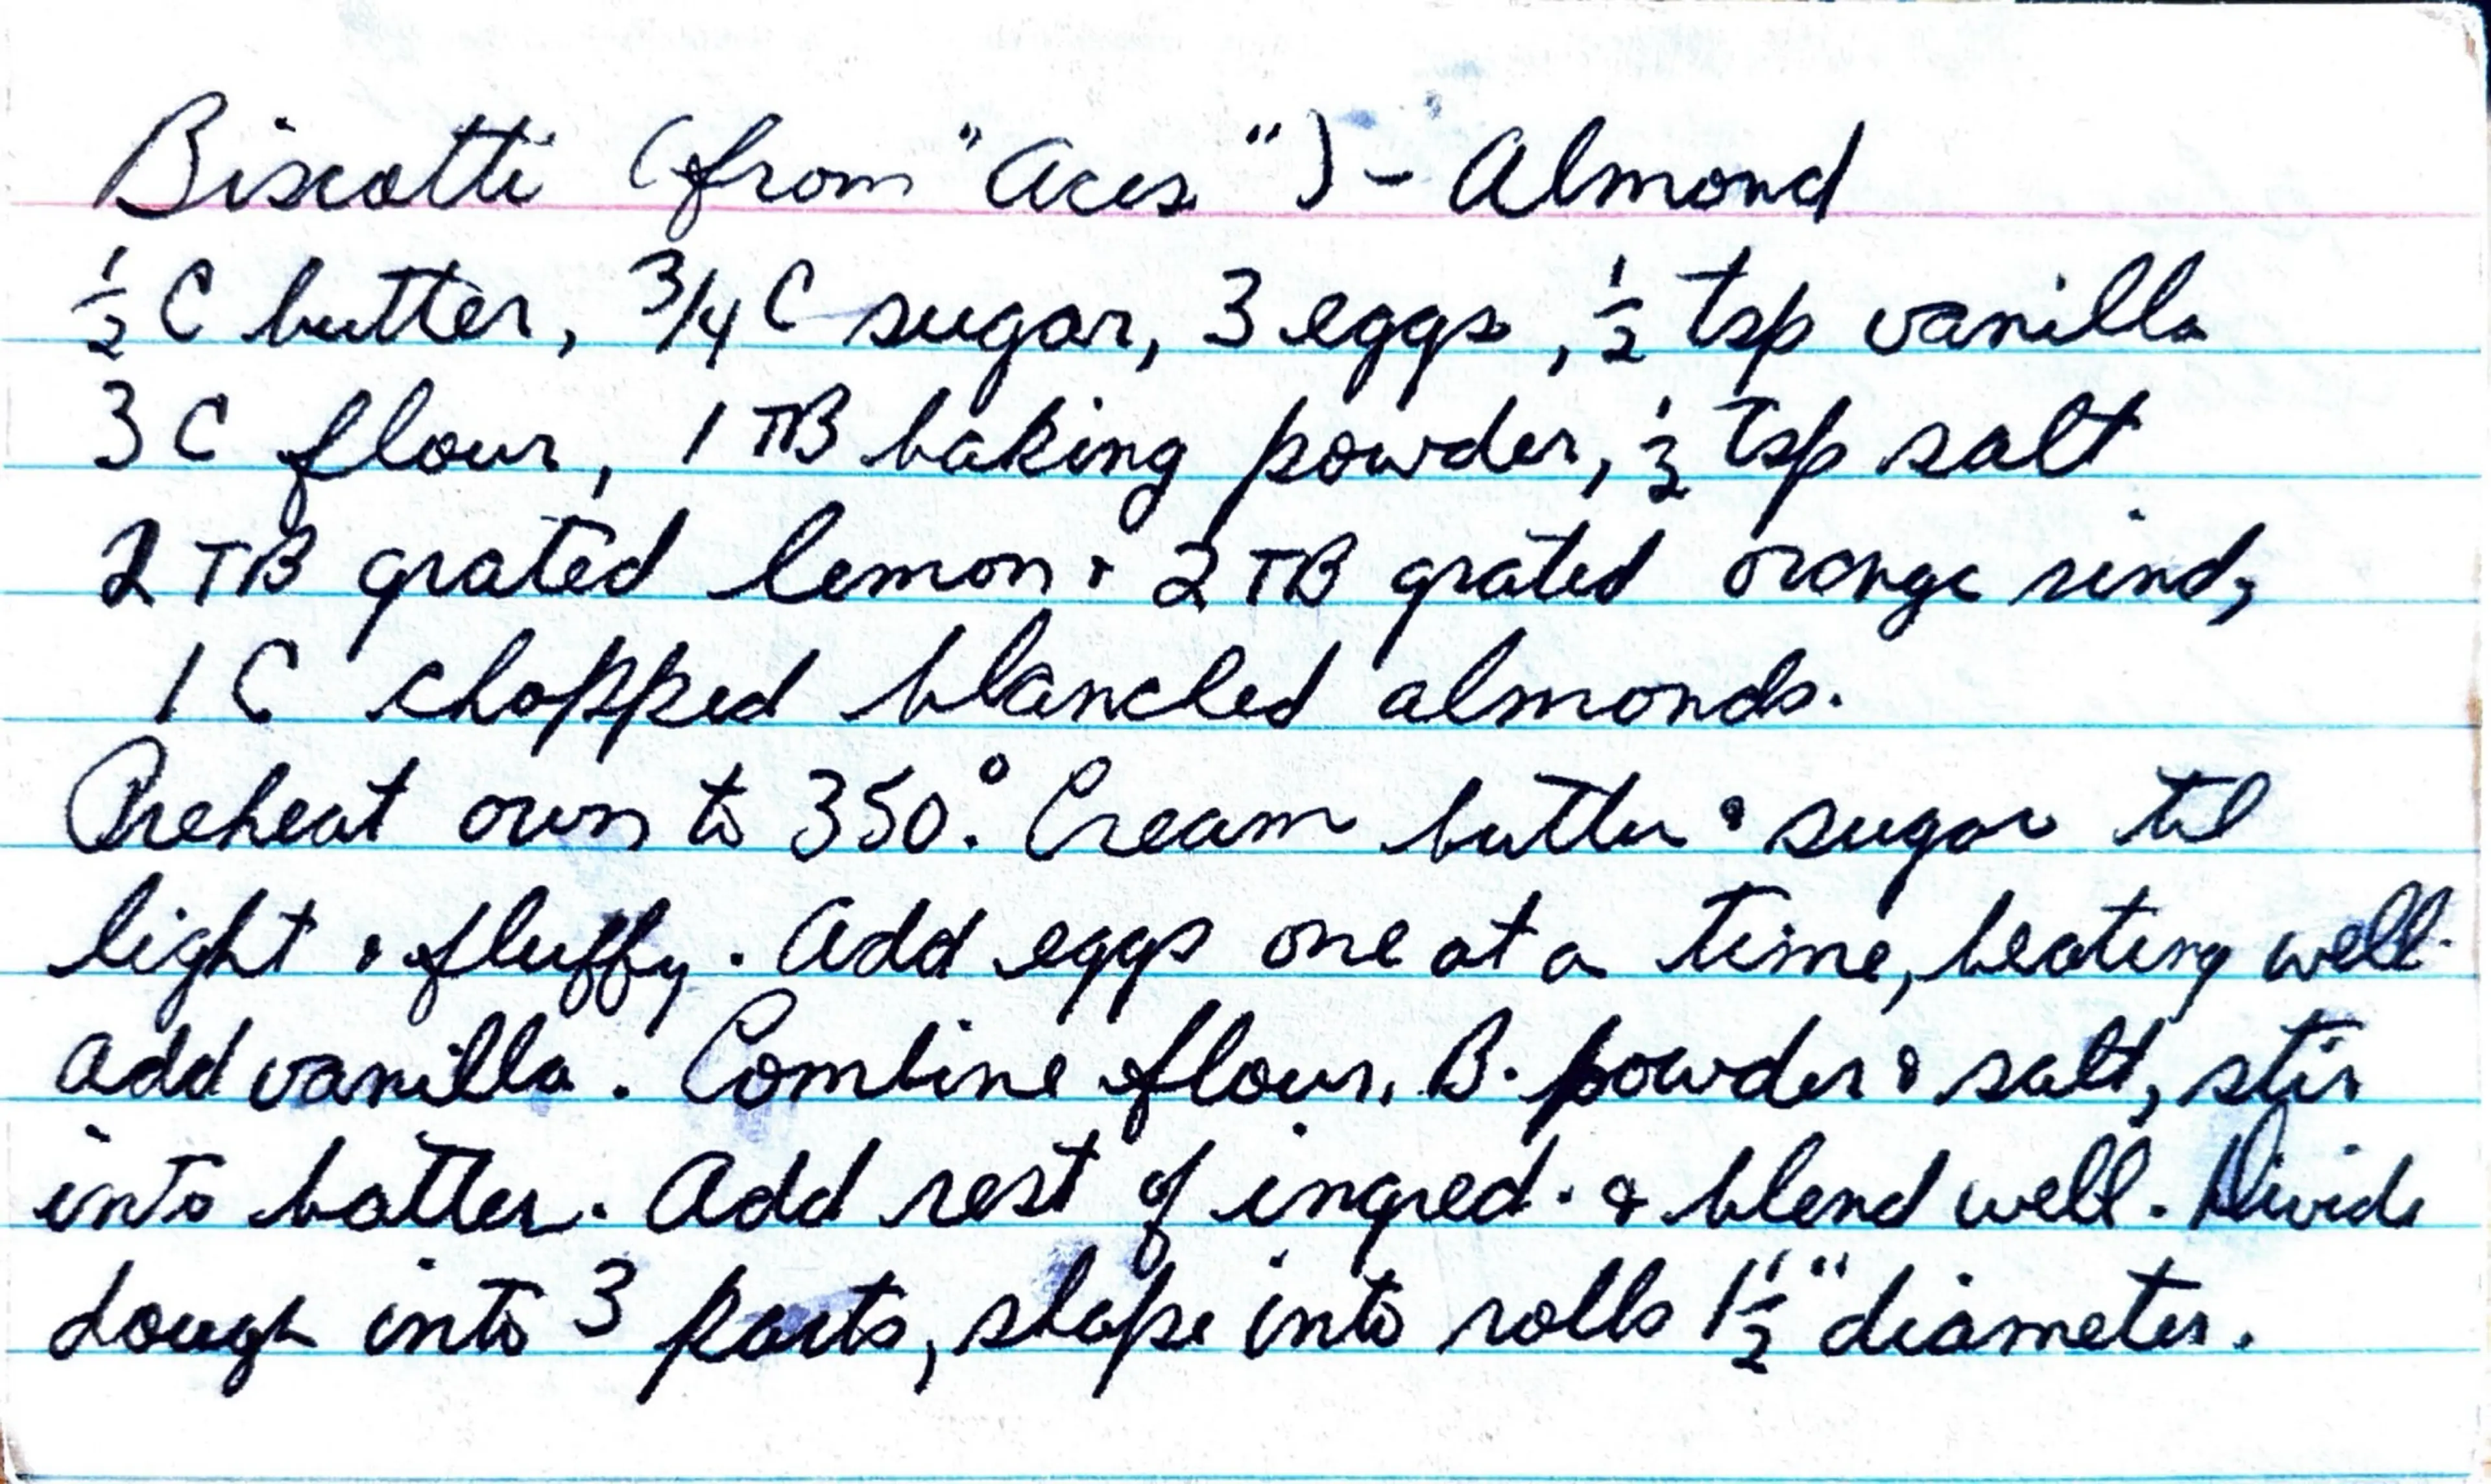 Biscotti (from "Aces") - Almond
½ C butter, 3/4 C sugar, 3 eggs, ½ tsp vanilla
3 C flour, 1 TB baking powder, ½ tsp salt
2 TB grated lemon & 2 TB grated orange rind,
1 C chopped blanched almonds.
Preheat oven to 350°. Cream butter & sugar til
light & fluffy. Add eggs one at a time, beating well.
Add vanilla. Combine flour, B. powder & salt, stir
into batter. Add rest of ingred. & blend well. Divide
dough into 3 parts, shape into rolls 1½" diameter.